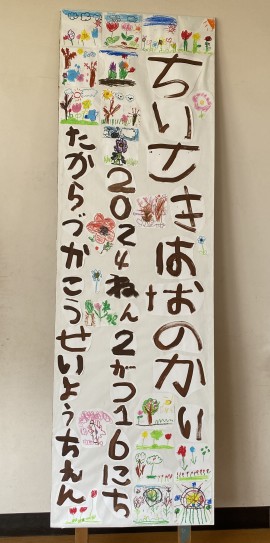 ちいさきはなのかい
2024ねん2がつ16にち
たからづかこうせいようちえん